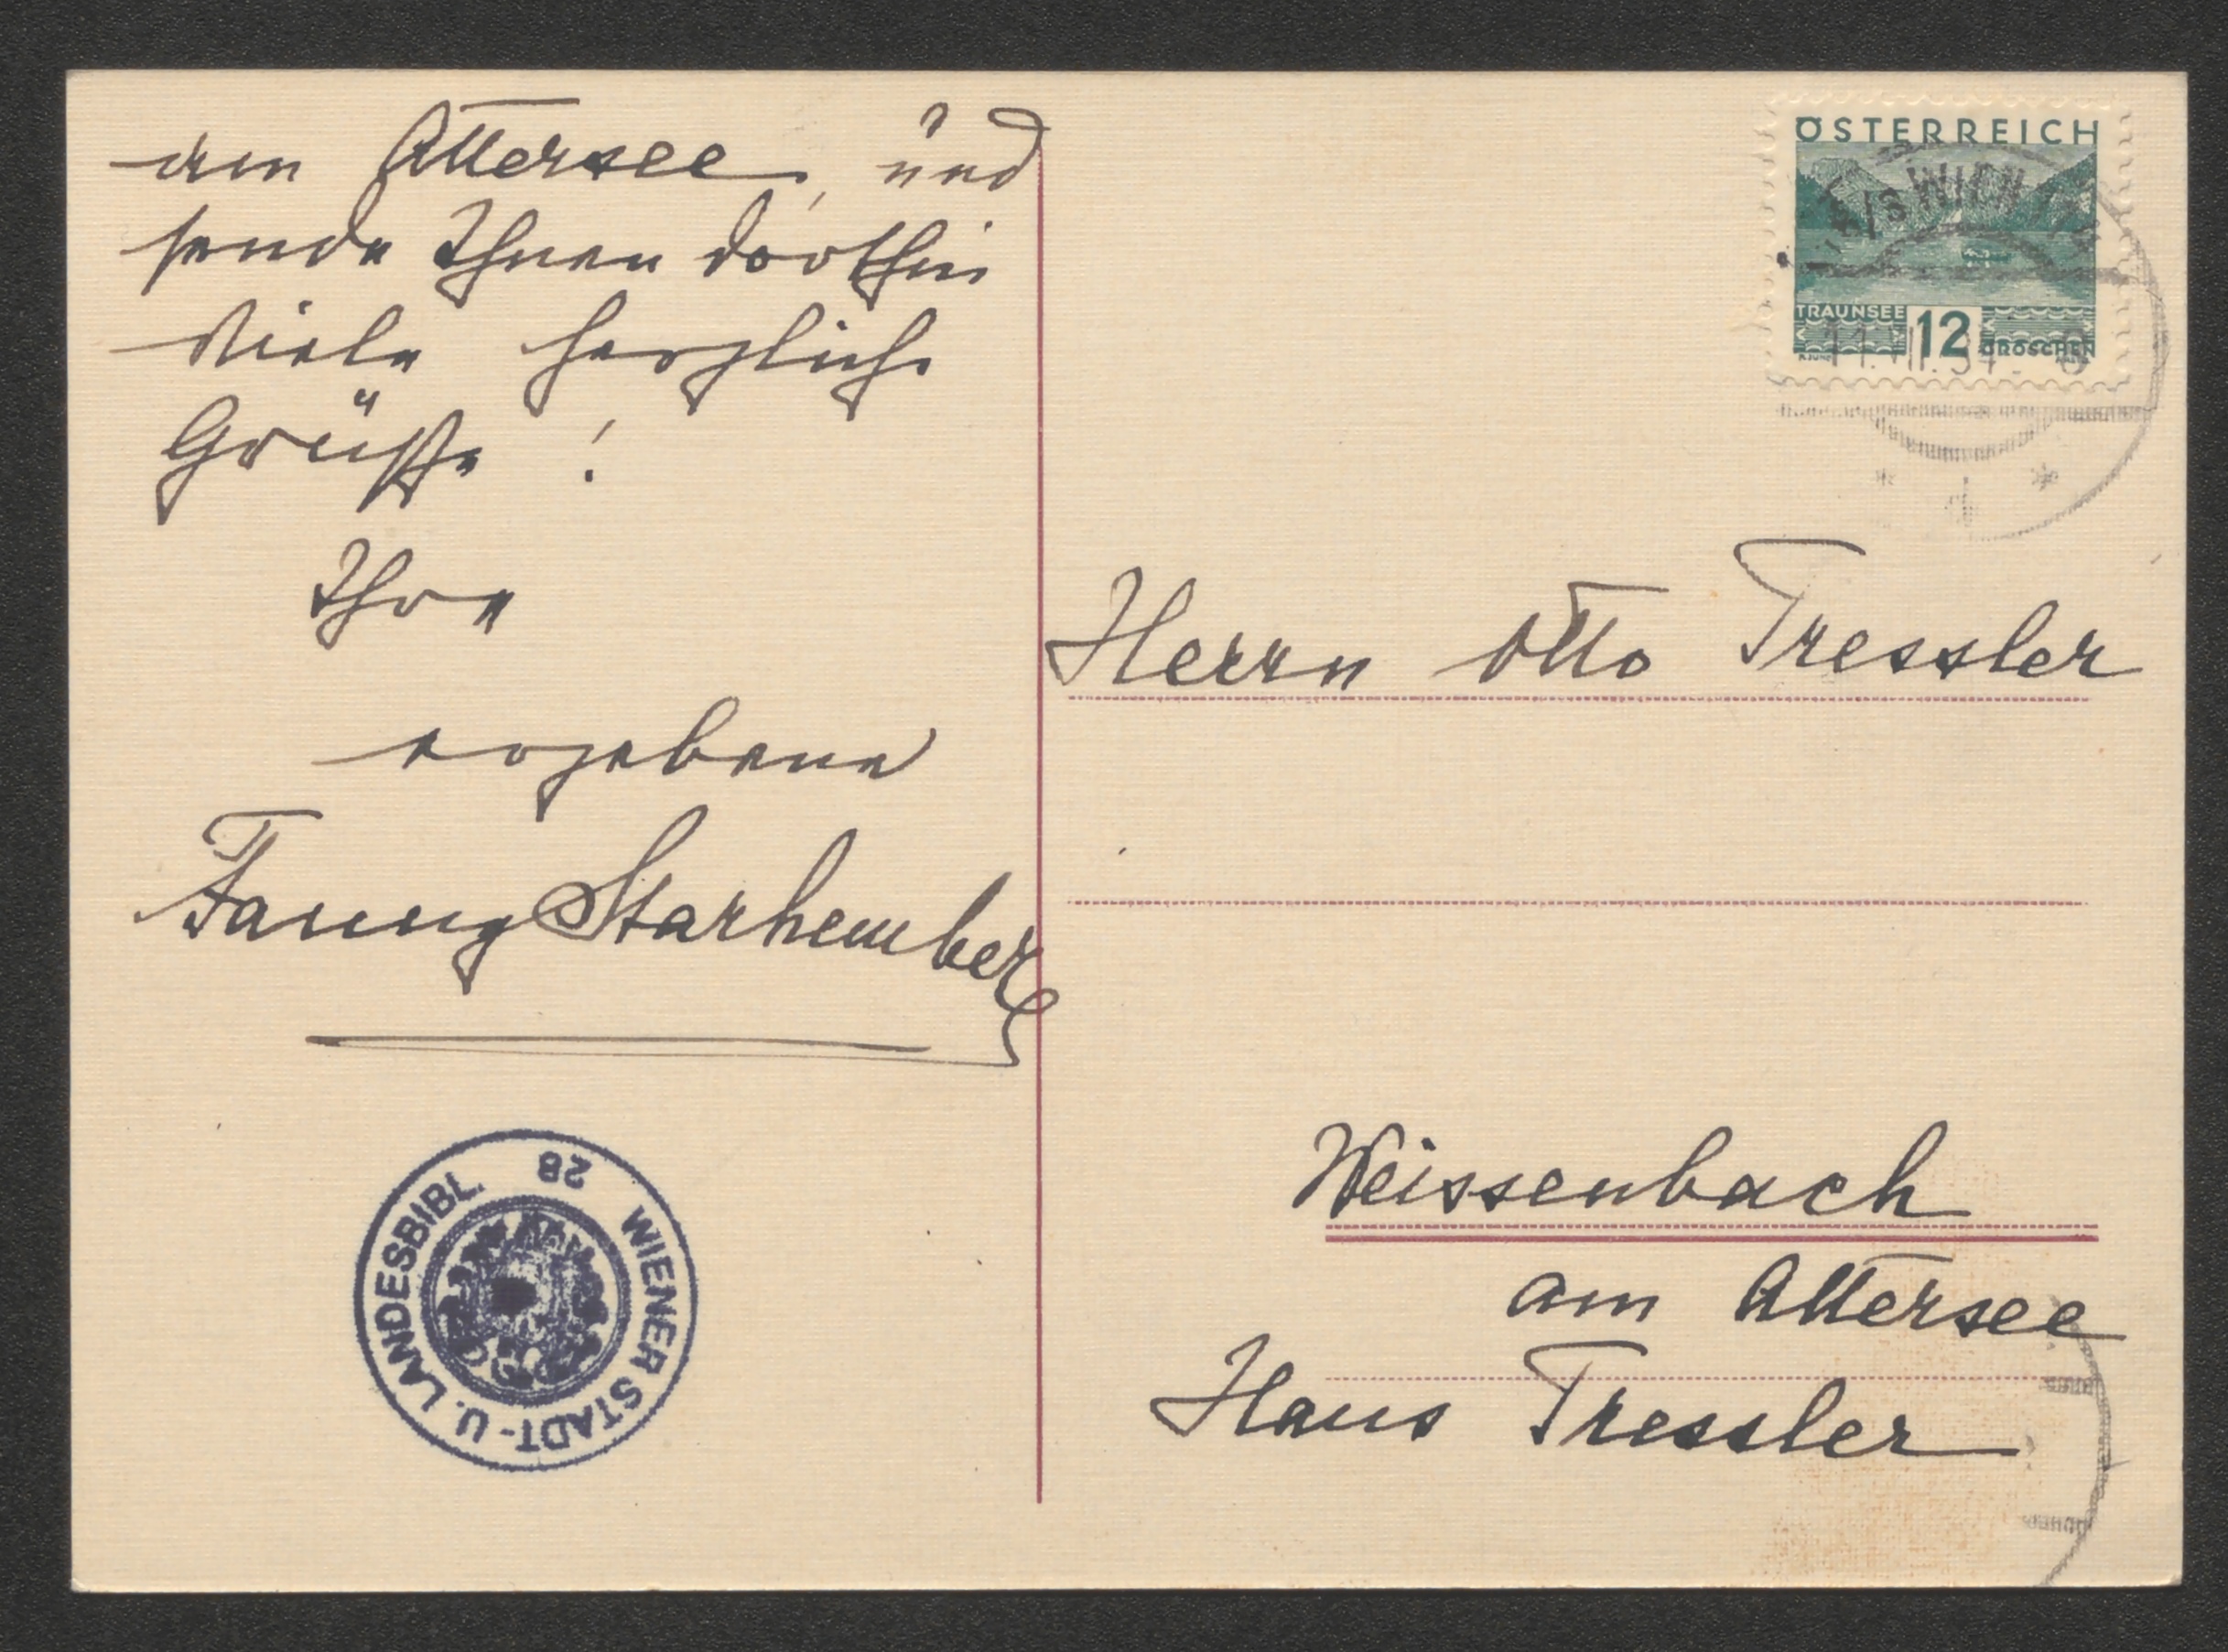 am Attersee, und
sende Ihnen dorthin
viele herzliche
Grüße!
Ihre
ergebene
Fanny Starhemberg
WIENER STADT- U. LANDESBIBL.
28
ÖSTERREICH
WIEN
TRAUNSEE 12 GROSCHEN
Herrn Otto Tressler
Weissenbach
am Attersee
Haus Tressler